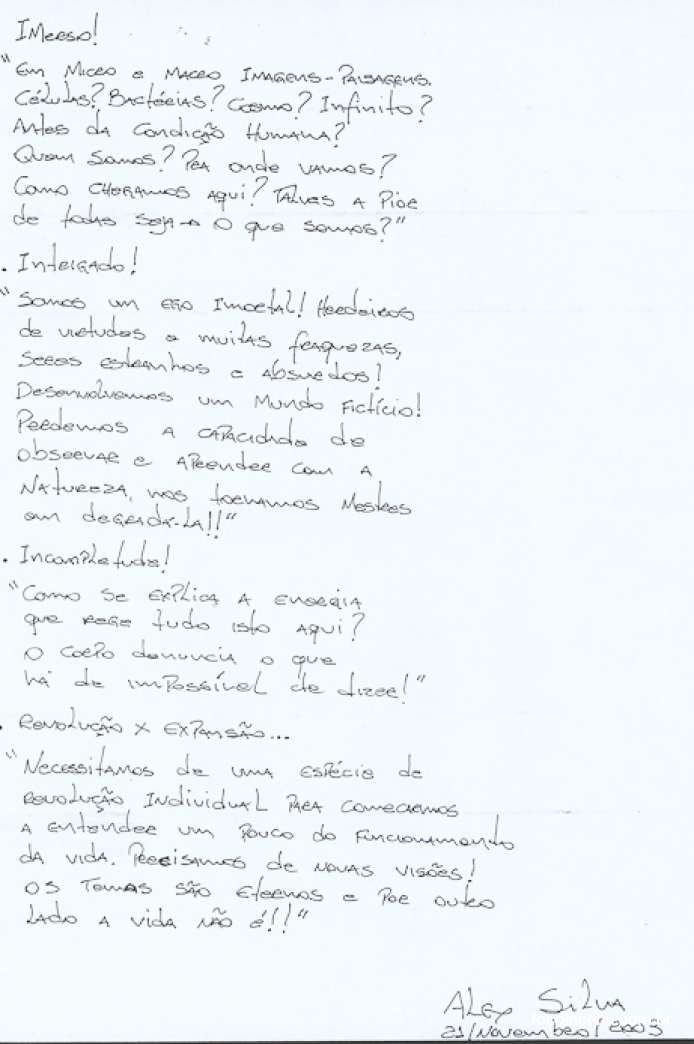 Imerso!
"Em Micro e Macro Imagens-Paisagens.
Células? Bactérias? Cosmo? Infinito?
Antes da Condição Humana?
Quem Somos? Pra onde vamos?
Como chegamos aqui? Talves a Pior
de todas seja-a O que somos?"
. Interigado!
"Somos um ego Imortal! Herdeiros
de virtudes e muitas fraquezas,
Seres estranhos e absurdos!
Desenvolvemos um Mundo Fictício!
Perdemos a capacidade de
observar e aprender com a
Natureza, nos tornamos Mestres
em degradá-la!!"
. Incompletude!
"Como se explica a energia
que rege tudo isto aqui?
O corpo denuncia o que
há de impossível de dizer!"
. Revolução x Expansão...
"Necessitamos de uma espécie de
revolução individual para começarmos
a entender um pouco do funcionamento
da vida. Precisamos de novas visões!
Os Temas são eternos e por outro
lado a vida não é!!"
Alex Silva
21/Novembro/2003